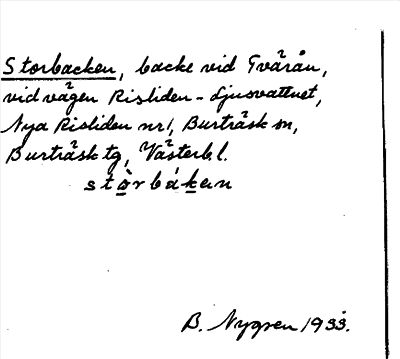 Storbacken, backe vid Tvärån,
vid vägen Risliden - Ljusvattnet,
Nya Risliden nr 1, Burträsk sn,
Burträsk tg, Västerb. l.
stòrbákan
B. Nygren 1933.